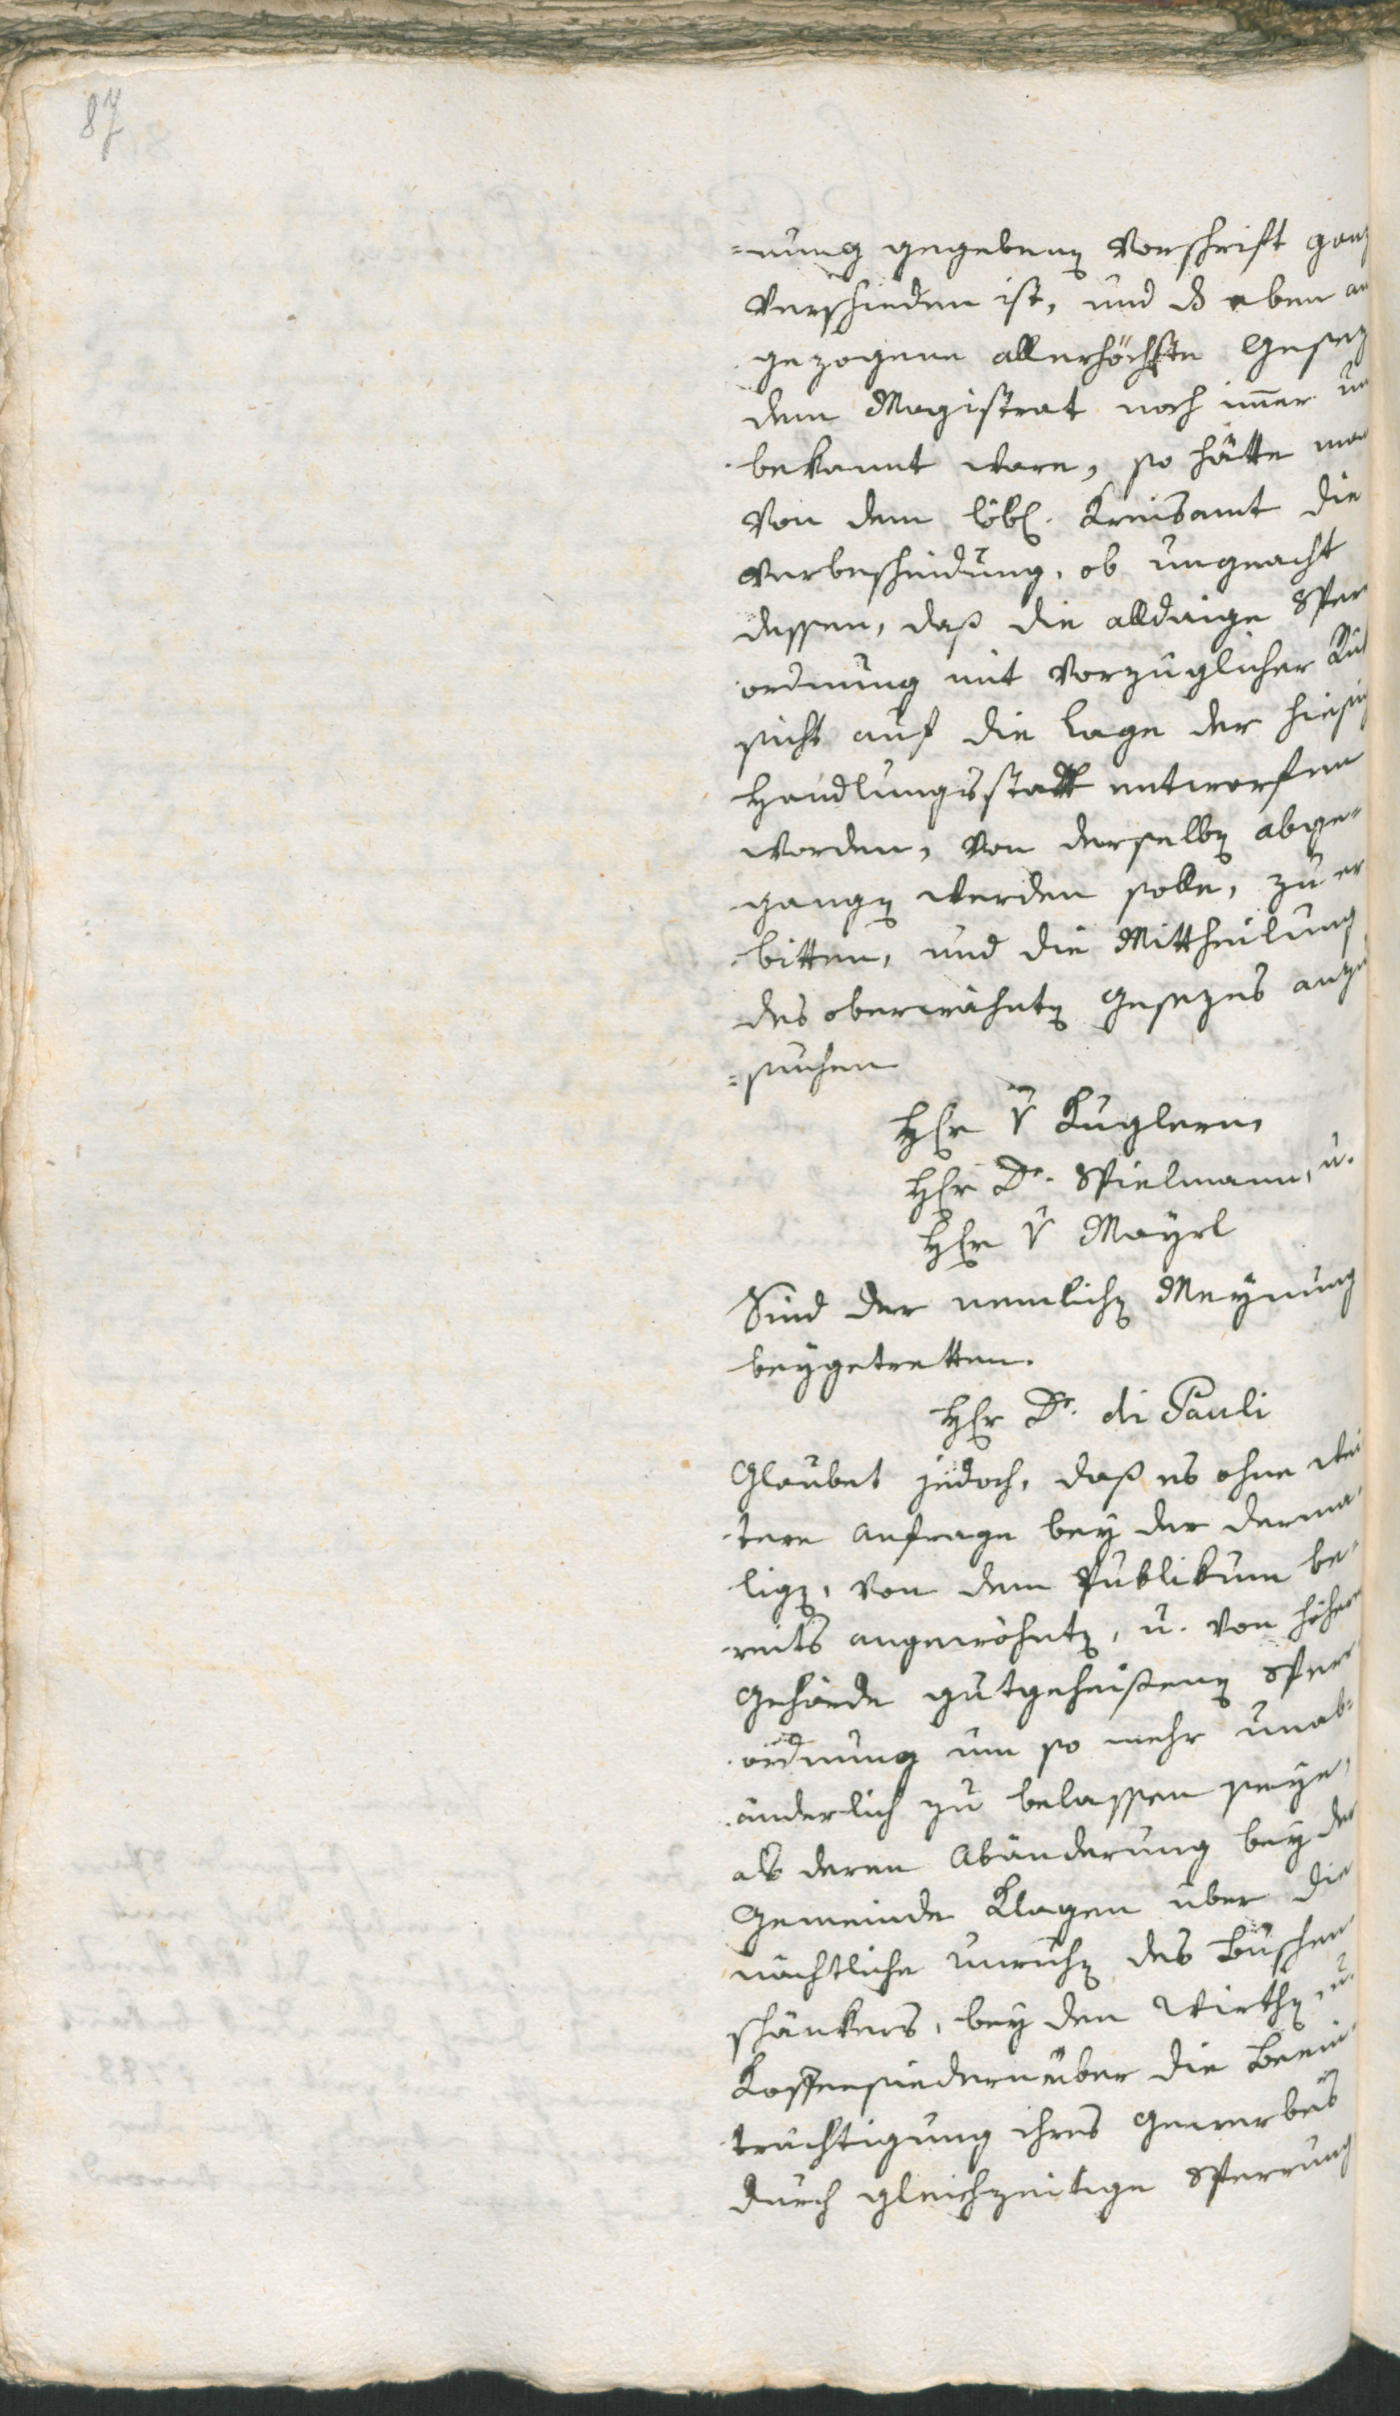 87
=nung gegebenen Vorschrift ganz
Verschieden ist, und d eben an
gezogene allerhöchste Gesez
dem Magistrat noch im̅er un
bekannt ware, so hätte man
Von dem löbl. Kreisamt die
Verbescheidung, ob ungeacht
dessen, daß die alldaige Sper
ordnung mit Vorzüglicher Rük
sicht auf die Lage der hiesig
Handlungsstatt entworfen
worden, Von derselben abge-
gangen werden solle, zu er
bitten, und die Mittheilung
des oberwähnten Gesezes anzu
=suchen
Hr v Kuglern,
Hr Dr. Spielmann, u.
Hr v Mayrl
Sind der nemlichen Meynung
beygetretten.
Hr Dr. di Pauli
Glaubet jedoch, daß es ohne wei
tere Anfrage bey der derma-
ligen, Von dem Publikum be-
reits angewöhnten, u. Von höherer
Gehörde gutgeheißenen Sperr
ordnung um so mehr unab-
änderlich zu belassen seye,
als deren Abänderung bey der
Gemeinde Klagen über die
nächtliche Unruhen des Buschen
schänkers, bey den Wirthen u.
Koffeesiedern über die Beein-
trächtigung ihres Gewerbes
durch gleichzeitige Sperrung